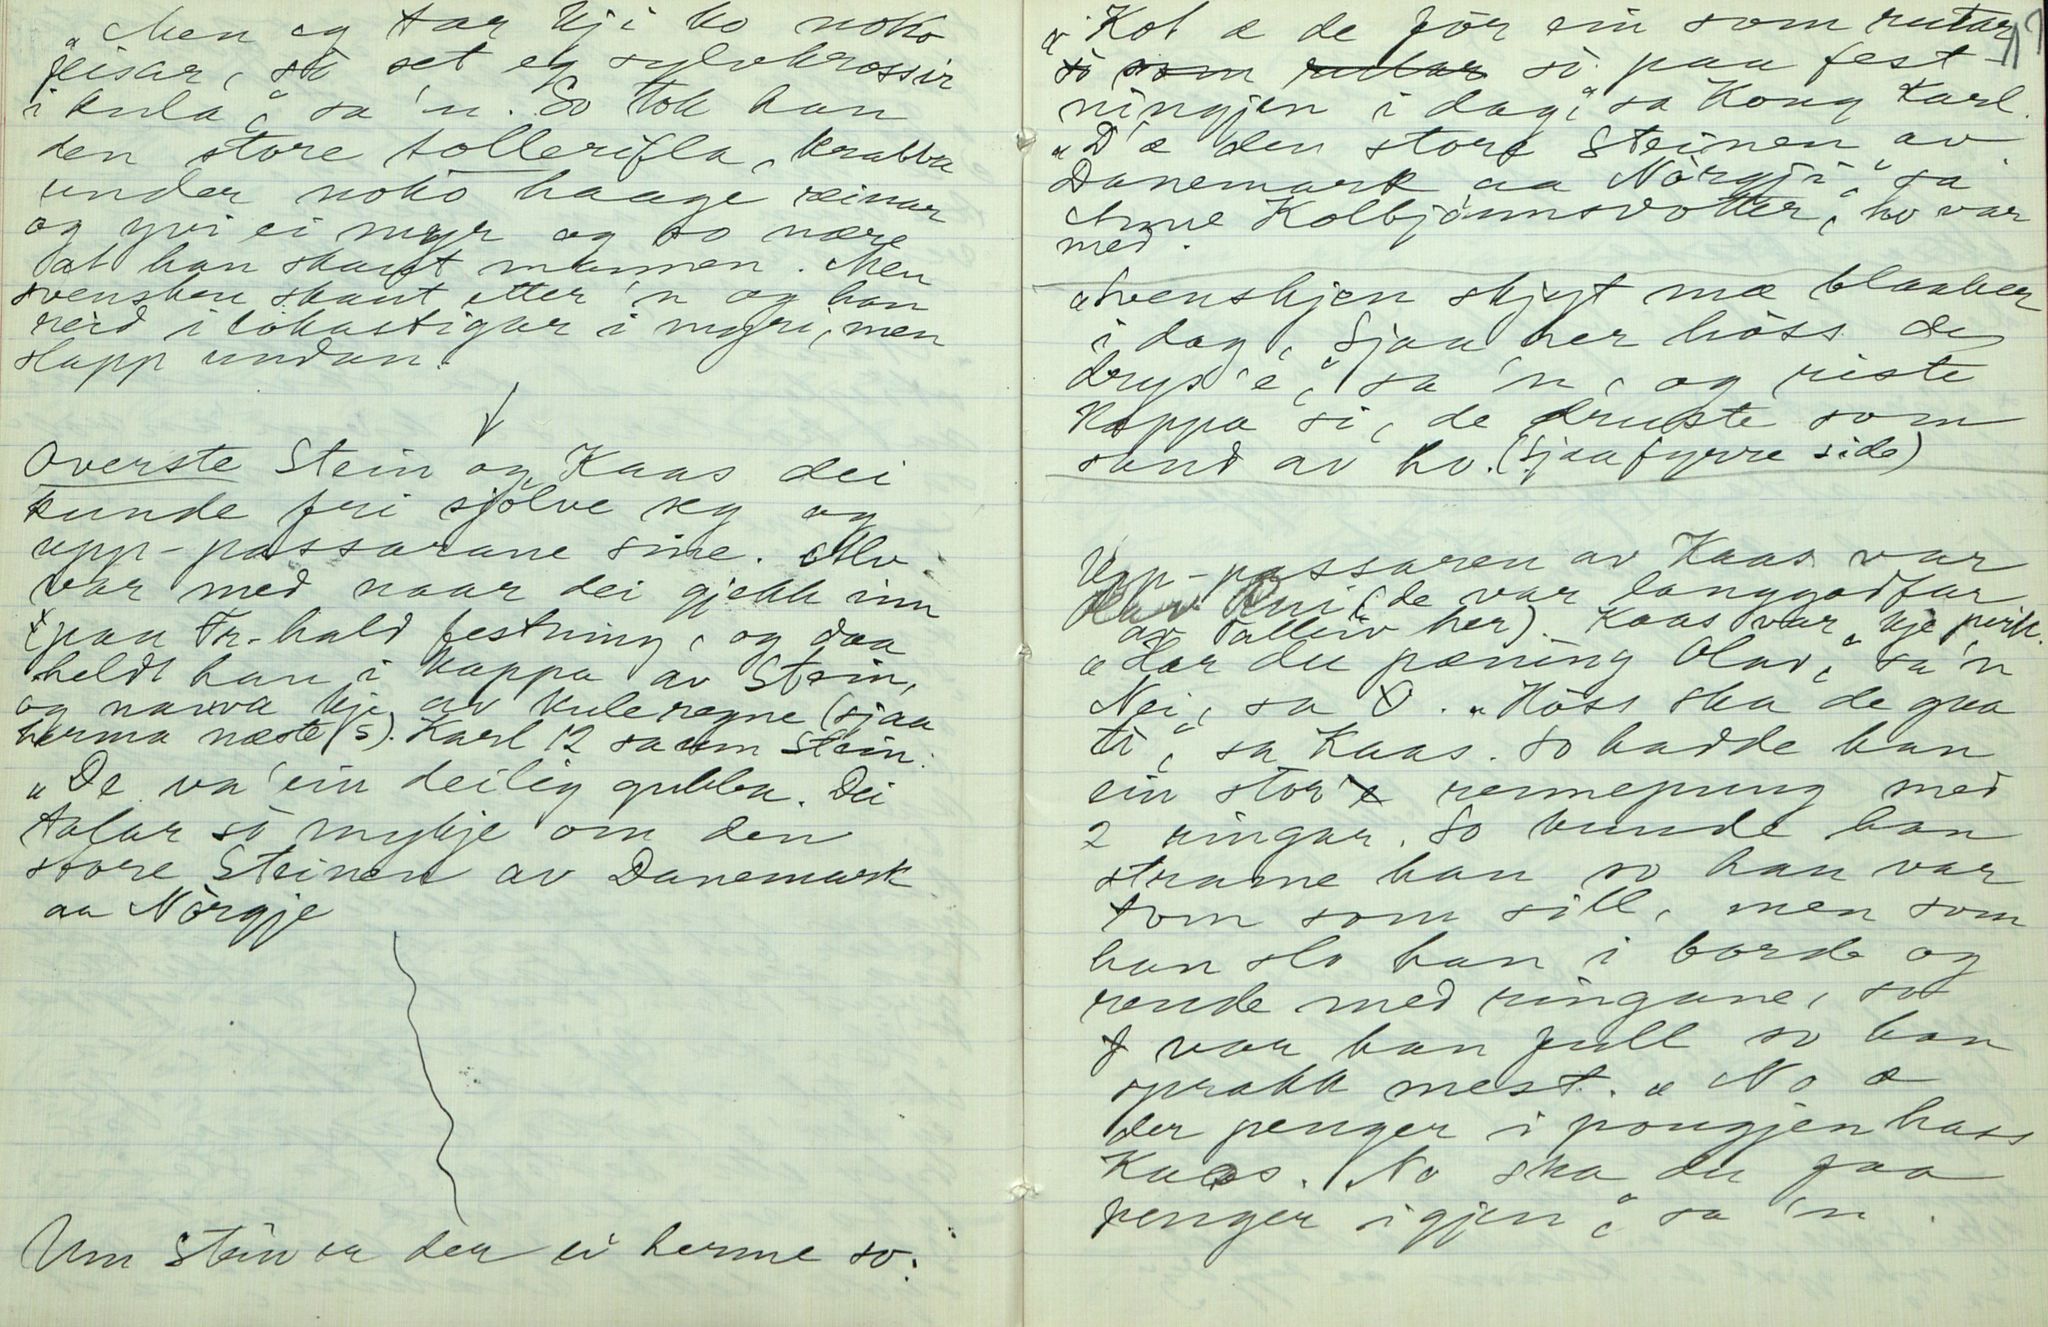 „Men eg tar kji ko noko
feisar, så set eg sylvkrossir
i kula," sa 'n. So tok han
den store tollerifla, krabba
under noko haage reinar
og yvi ei myr og so nære
at han skaut mannen. Men
svensken skaut etter 'n og han
reid i lökastigar i myri, men
slapp undan.
Overste Stein og Kaas dei
kunde fri sjölve seg og
upp-passarane sine. Alv
var med naar dei gjekk inn
paa Fr-hald festning, og daa
heldt han i kappa av Stein,
og narra kje av kuleregne (sjaa
herma næste s). Karl 12 sa um Stein:
„De va' ein deilig gubba. Dei
talar så mykje om den
store Steinen av Danemark
aa Nörgje
Um Stein er der ei herme so:
„Kot æ de för ein som rutar
så som rutar så paa fest-
ningjen i dag," sa Kong Karl.
„D'æ den store Steinen av
Danemark aa Nörgji," sa
Anne Kolbjönnsdotter, ho var
med.
„Svenskjen skjyt mæ blaaber
i dag, Sjaa her höss de
drys'e," sa 'n, og riste
kappa si, de druste som
sand av ho. (Sjaa fyrre side)
Upp-passaren av Kaas var
(de var langgodfar
av Talleiv her). Kaas var „kje rik.
„Har du pæning Olav," sa 'n
Nei, sa O. „Höss ska de gaa
te," sa Kaas. So hadde han
ein stor rennepung med
2 ringar. So kunde han
strame han so han var
tom som sill, men som
han slo han i borde og
rende med ringane, so
var han full so han
sprakk mest. „No æ
der penger i pongjen hass
Kaas. No ska du faa
penger igjen," sa 'n.